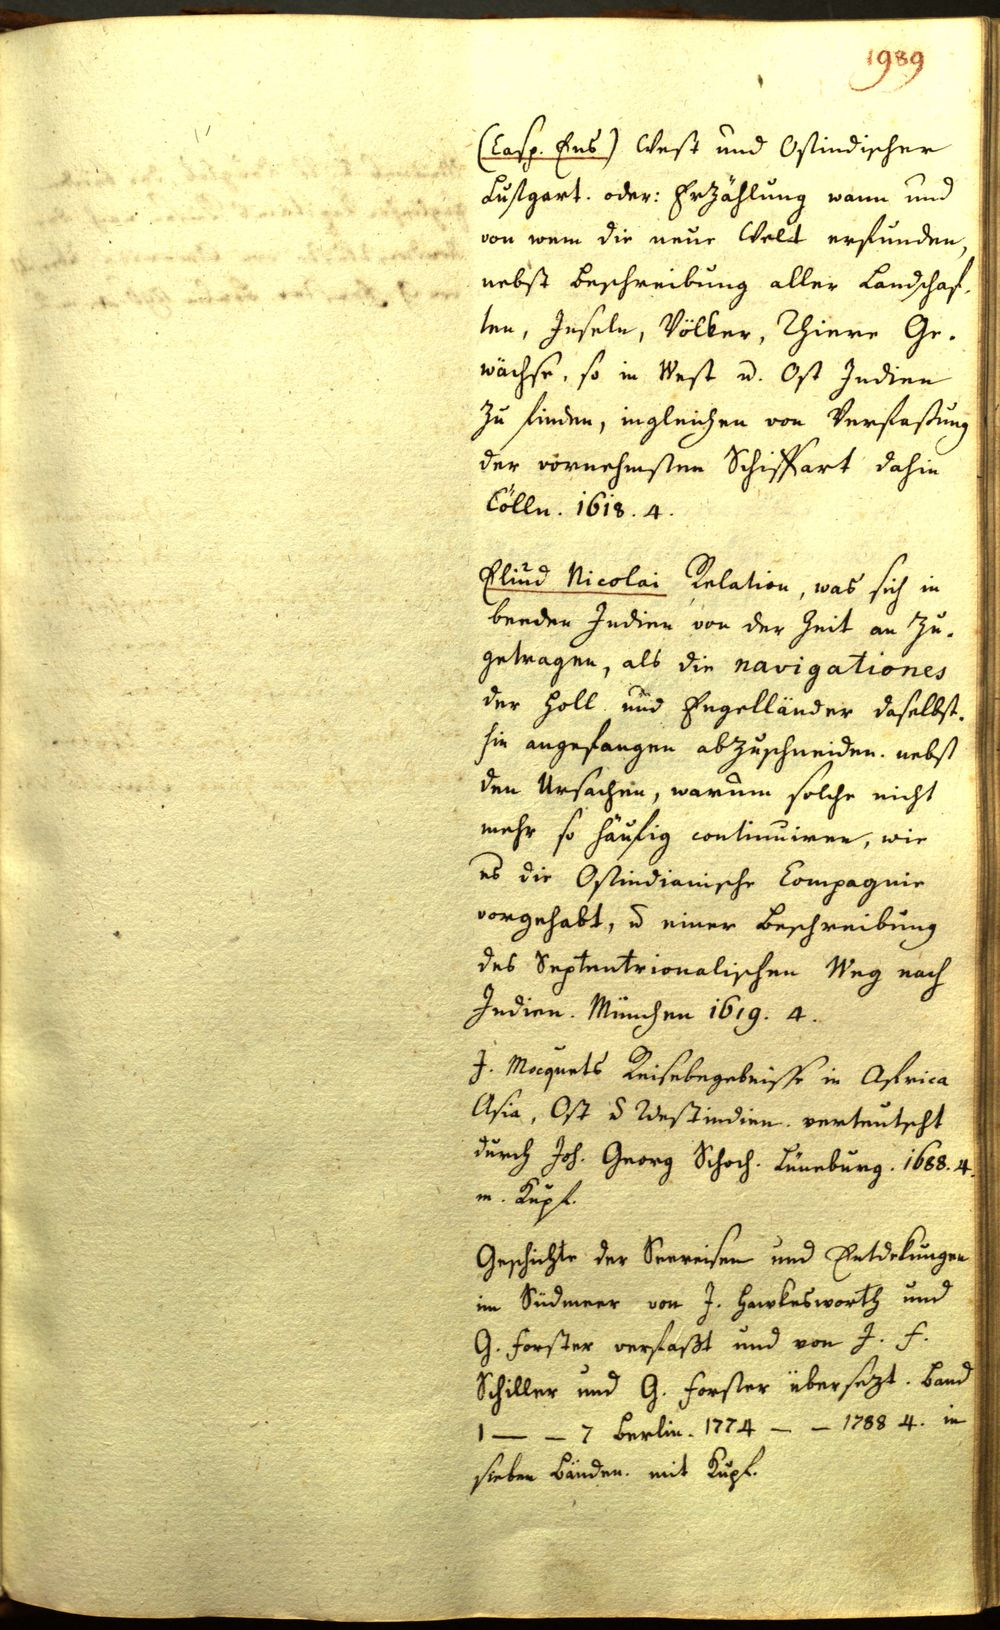 1989
(Casp. Ens) West und Ostindischer
Lustgart. oder: Erzählung wann und
von wem die neue Welt erfunden,
nebst Beschreibung aller Landschaf-
ten, Inseln, Völker, Thiere Ge-
wächse, so in West u. Ost Indien
zu finden, ingleichen von Verfaßung
der vornehmsten Schiffart dahin
Cölln. 1618. 4.
Eliud Nicolai Relation, was sich in
beeden Indien von der Zeit an zu-
getragen, als die navigationes
der Holl und Engelländer daselbst-
hin angefangen abzuschneiden. nebst
den Ursachen, warum solche nicht
mehr so häufig continuiren, wie
es die Ostindianische Compagnie
vorgehabt, u einer Beschreibung
des Septentrionalischen Weg nach
Indien. München 1619. 4.
J. Mocquets Reisebegebnisse in Africa
Asia, Ost u Westindien. verteutscht
durch Joh. Georg Schoch. Lüneburg. 1688. 4.
m. Kupf.
Geschichte der Seereisen und Entdekungen
im Südmeer von J. Hawkesworth und
G. Forster verfaßt und von J. F.
Schiller und G. Forster übersezt. Band
1 — — 7 Berlin. 1774 — — 1788 4. in
sieben Bänden. mit Kupf.